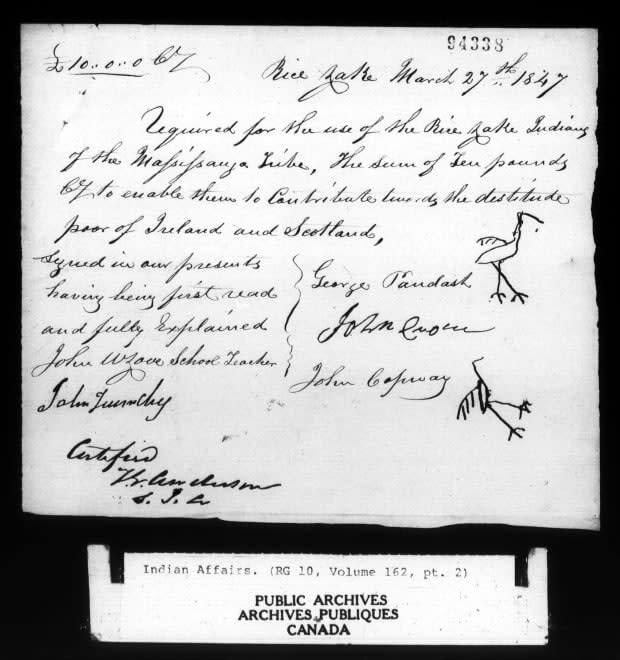 94338
£10..0..0 Cy
Rice Lake March 27th 1847
Required for the use of the Rice Lake Indians
of the Massissauga Tribe, The Sum of Ten pounds
Cy to enable them to Contribute towards the destitude
poor of Ireland and Scotland,
Signed in our presents
having being first read
and fully Explained
John W Love School Teacher
John Sunday
George Paudash
John Crow
John Copway
Certified
T. G. Anderson
S. I. A
Indian Affairs. (RG 10, Volume 162, pt. 2)
PUBLIC ARCHIVES
ARCHIVES PUBLIQUES
CANADA